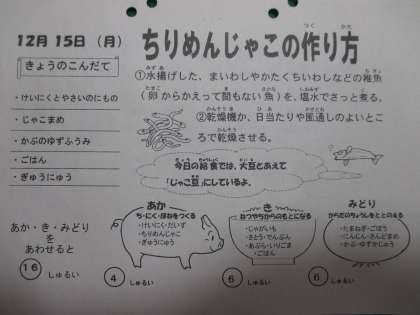 12月 15日 (月)
きょうのこんだて
・けいにくとやさいのにもの
・じゃこまめ
・かぶのゆずふうみ
・ごはん
・ぎゅうにゅう
ちりめんじゃこの作り方
①水揚げした、まいわしやかたくちいわしなどの稚魚
(卵からかえって間もない魚)を、塩水でさっと煮る。
②乾燥機か、日当たりや風通しのよいとこ
ろで乾燥させる。
今日の給食では、大豆とあえて
「じゃこ豆」にしているよ。
あか・き・みどり
をあわせると
16 しゅるい
あか
ち・にく・ほねをつくる
・けいにく・だいず
・ちりめんじゃこ
・ぎゅうにゅう
4 しゅるい
き
ねつやちからのもとになる
・じゃがいも
・さとう・でんぷん
・あぶら・いりごま
・ごはん
6 しゅるい
みどり
からだのちょうしをととのえる
・たまねぎ・ごぼう
・にんじん・さんどまめ
・かぶ・ゆずかじゅう
6 しゅるい